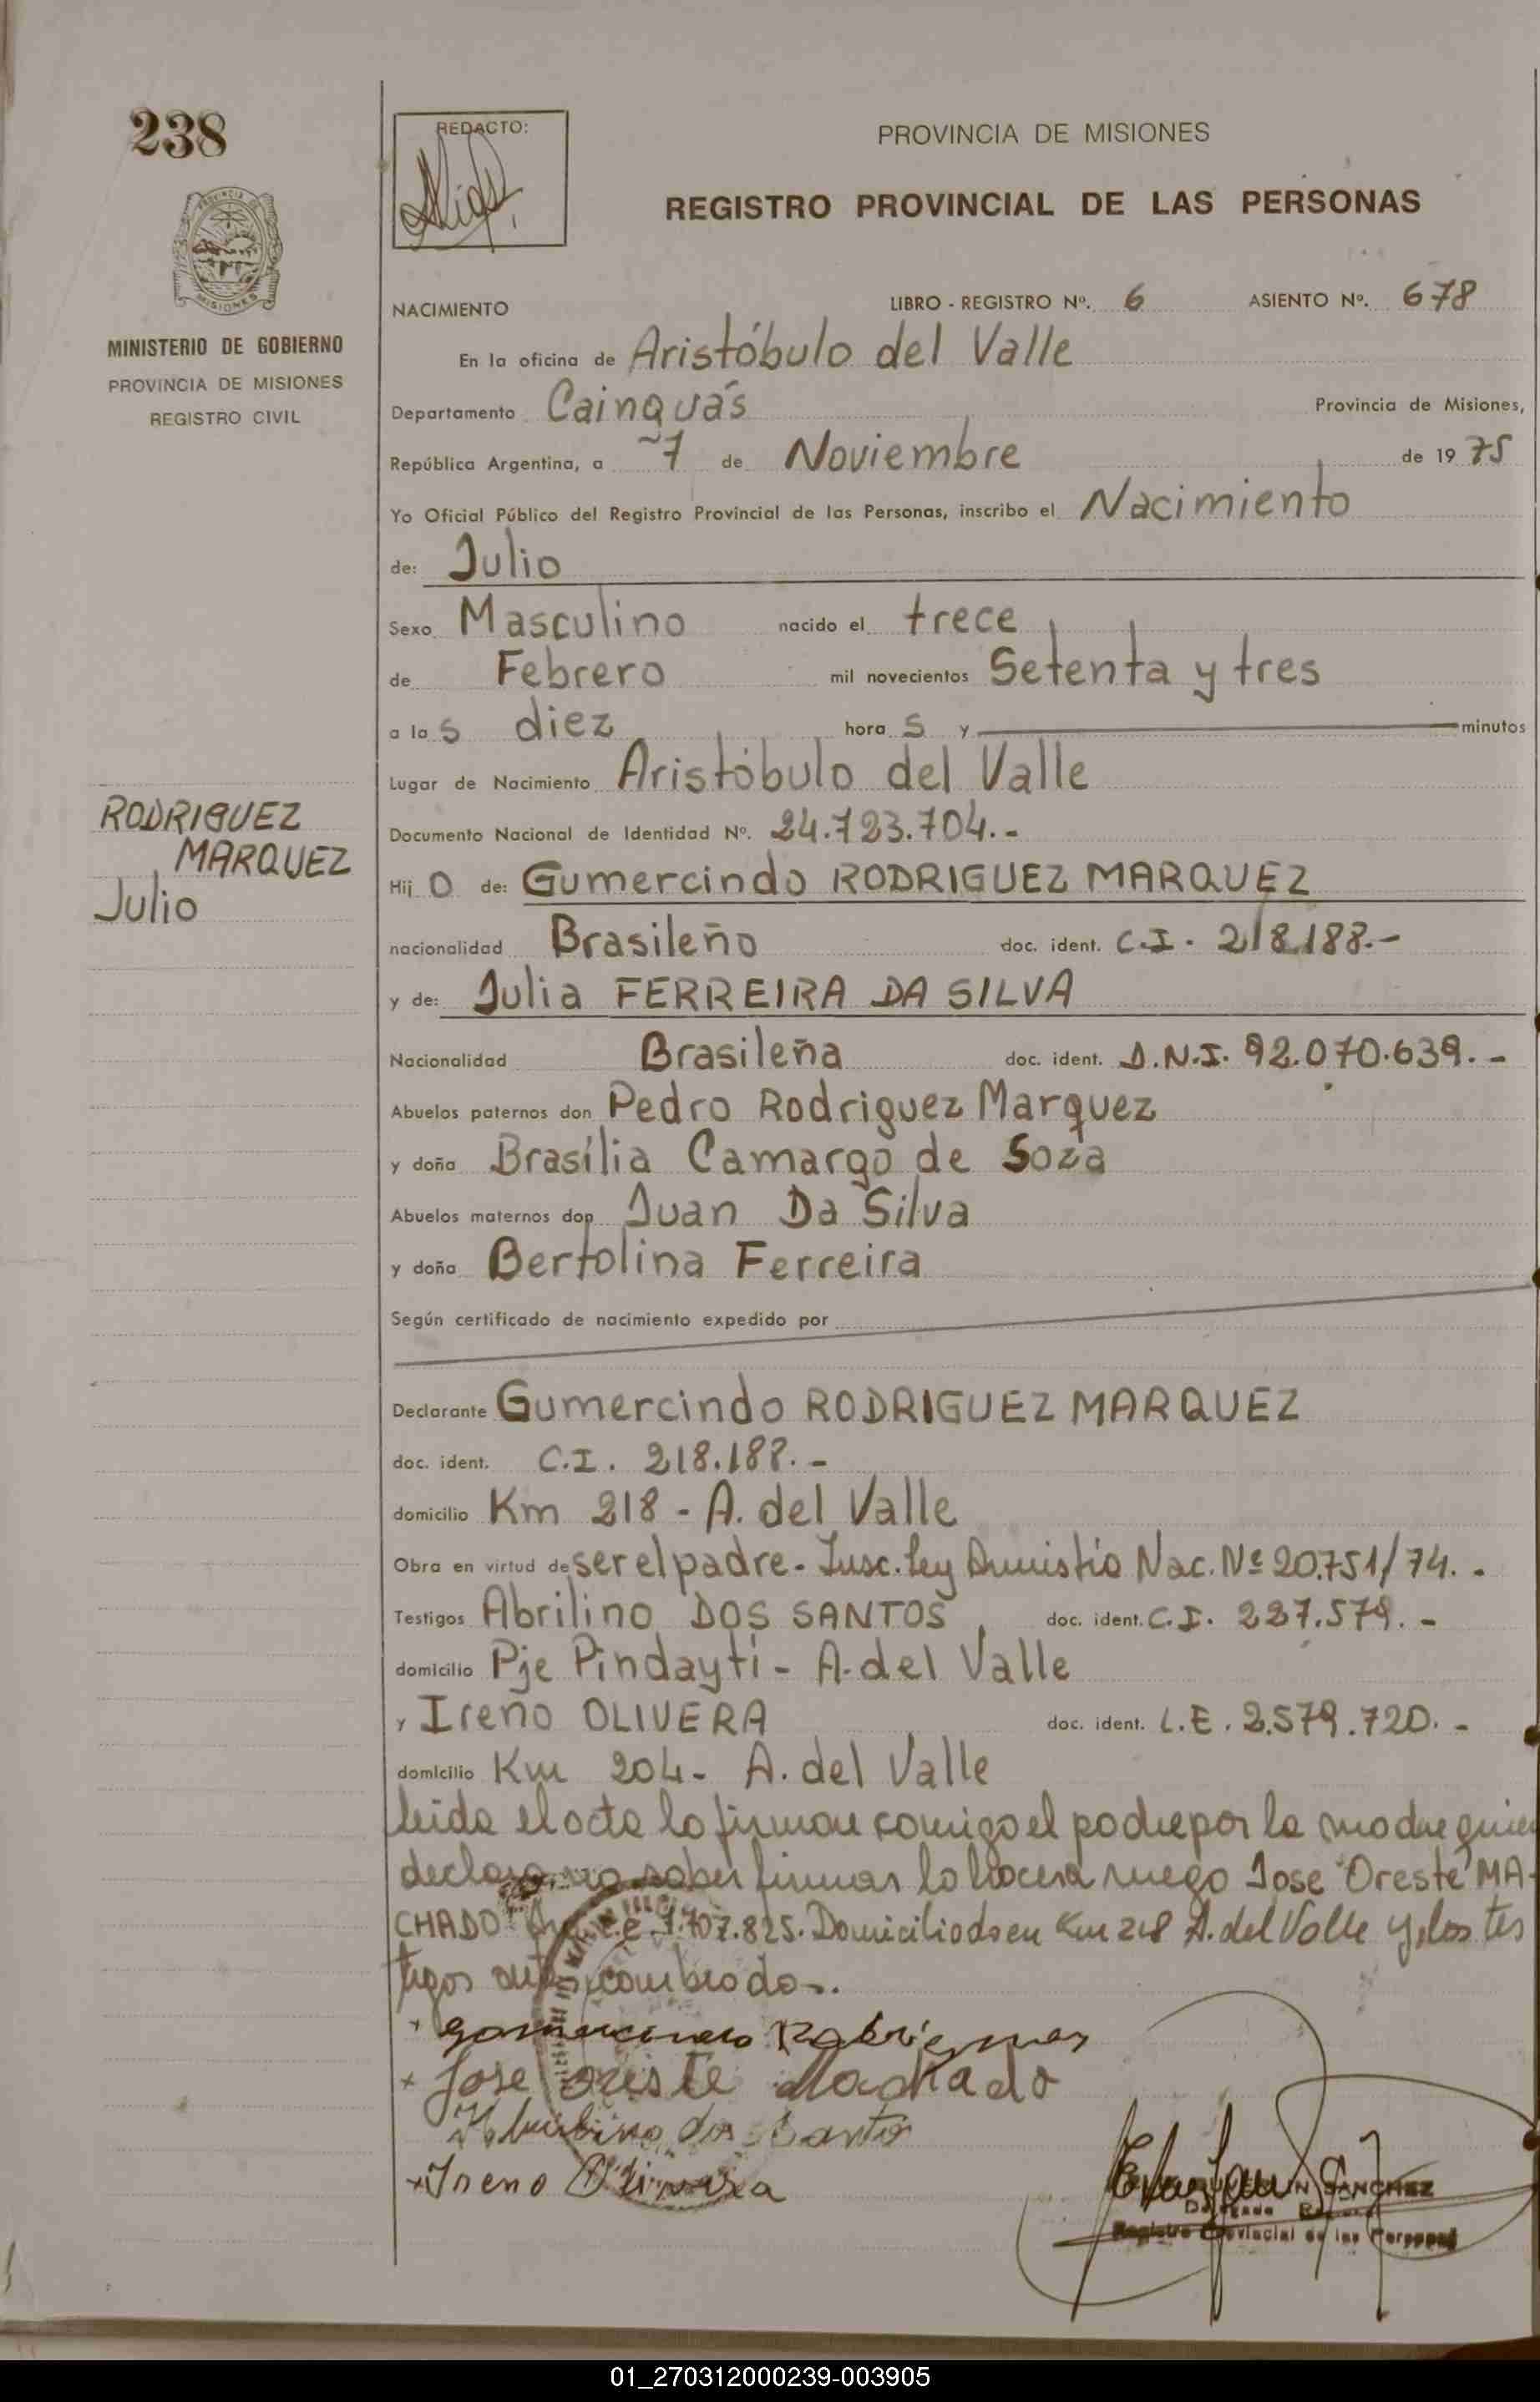 238
PROVINCIA DE
MISIONES
MINISTERIO DE GOBIERNO
PROVINCIA DE MISIONES
REGISTRO CIVIL
RODRIGUEZ
MARQUEZ
Julio
REDACTO:
PROVINCIA DE MISIONES
REGISTRO PROVINCIAL DE LAS PERSONAS
NACIMIENTO LIBRO - REGISTRO Nº. 6 ASIENTO Nº. 678
En la oficina de Aristóbulo del Valle
Departamento Cainguás Provincia de Misiones,
República Argentina, a 7 de Noviembre de 1975
Yo Oficial Público del Registro Provincial de las Personas, inscribo el Nacimiento
de: Julio
Sexo Masculino nacido el trece
de Febrero mil novecientos Setenta y tres
a las diez horas y minutos
Lugar de Nacimiento Aristóbulo del Valle
Documento Nacional de Identidad Nº. 24.723.704.-
Hijo de: Gumercindo RODRIGUEZ MARQUEZ
nacionalidad Brasileño doc. ident. C.I. 218.188.-
y de: Julia FERREIRA DA SILVA
Nacionalidad Brasileña doc. ident. D.N.I. 92.070.639.-
Abuelos paternos don Pedro Rodriguez Marquez
y doña Brasília Camargo de Soza
Abuelos maternos don Juan Da Silva
y doña Bertolina Ferreira
Según certificado de nacimiento expedido por
Declarante Gumercindo RODRIGUEZ MARQUEZ
doc. ident. C.I. 218.188.-
domicilio Km 218 - A. del Valle
Obra en virtud de ser el padre - Insc. Ley Amnistia Nac. Nº 20.751/74.-
Testigos Abrilino DOS SANTOS, doc. ident. C.I. 227.579.-
domicilio Pje Pindaytí - A. del Valle
y Ireño OLIVERA doc. ident. L.E. 2.579.720.-
domicilio Km 204 - A. del Valle
leida el acta la firman comigo el padre por la madre quien
declara no saber firmar lo hace a ruego Jose Oreste MA-
CHADO 7.707.825. Domiciliado en Km 218 A. del Valle y los tes
tigos
Rodriguez
Jose Oreste Machado
dos Santo
Ireno Olivera
SANCHEZ
Delegado
Registro Provincial de las Personas
01_270312000239-003905